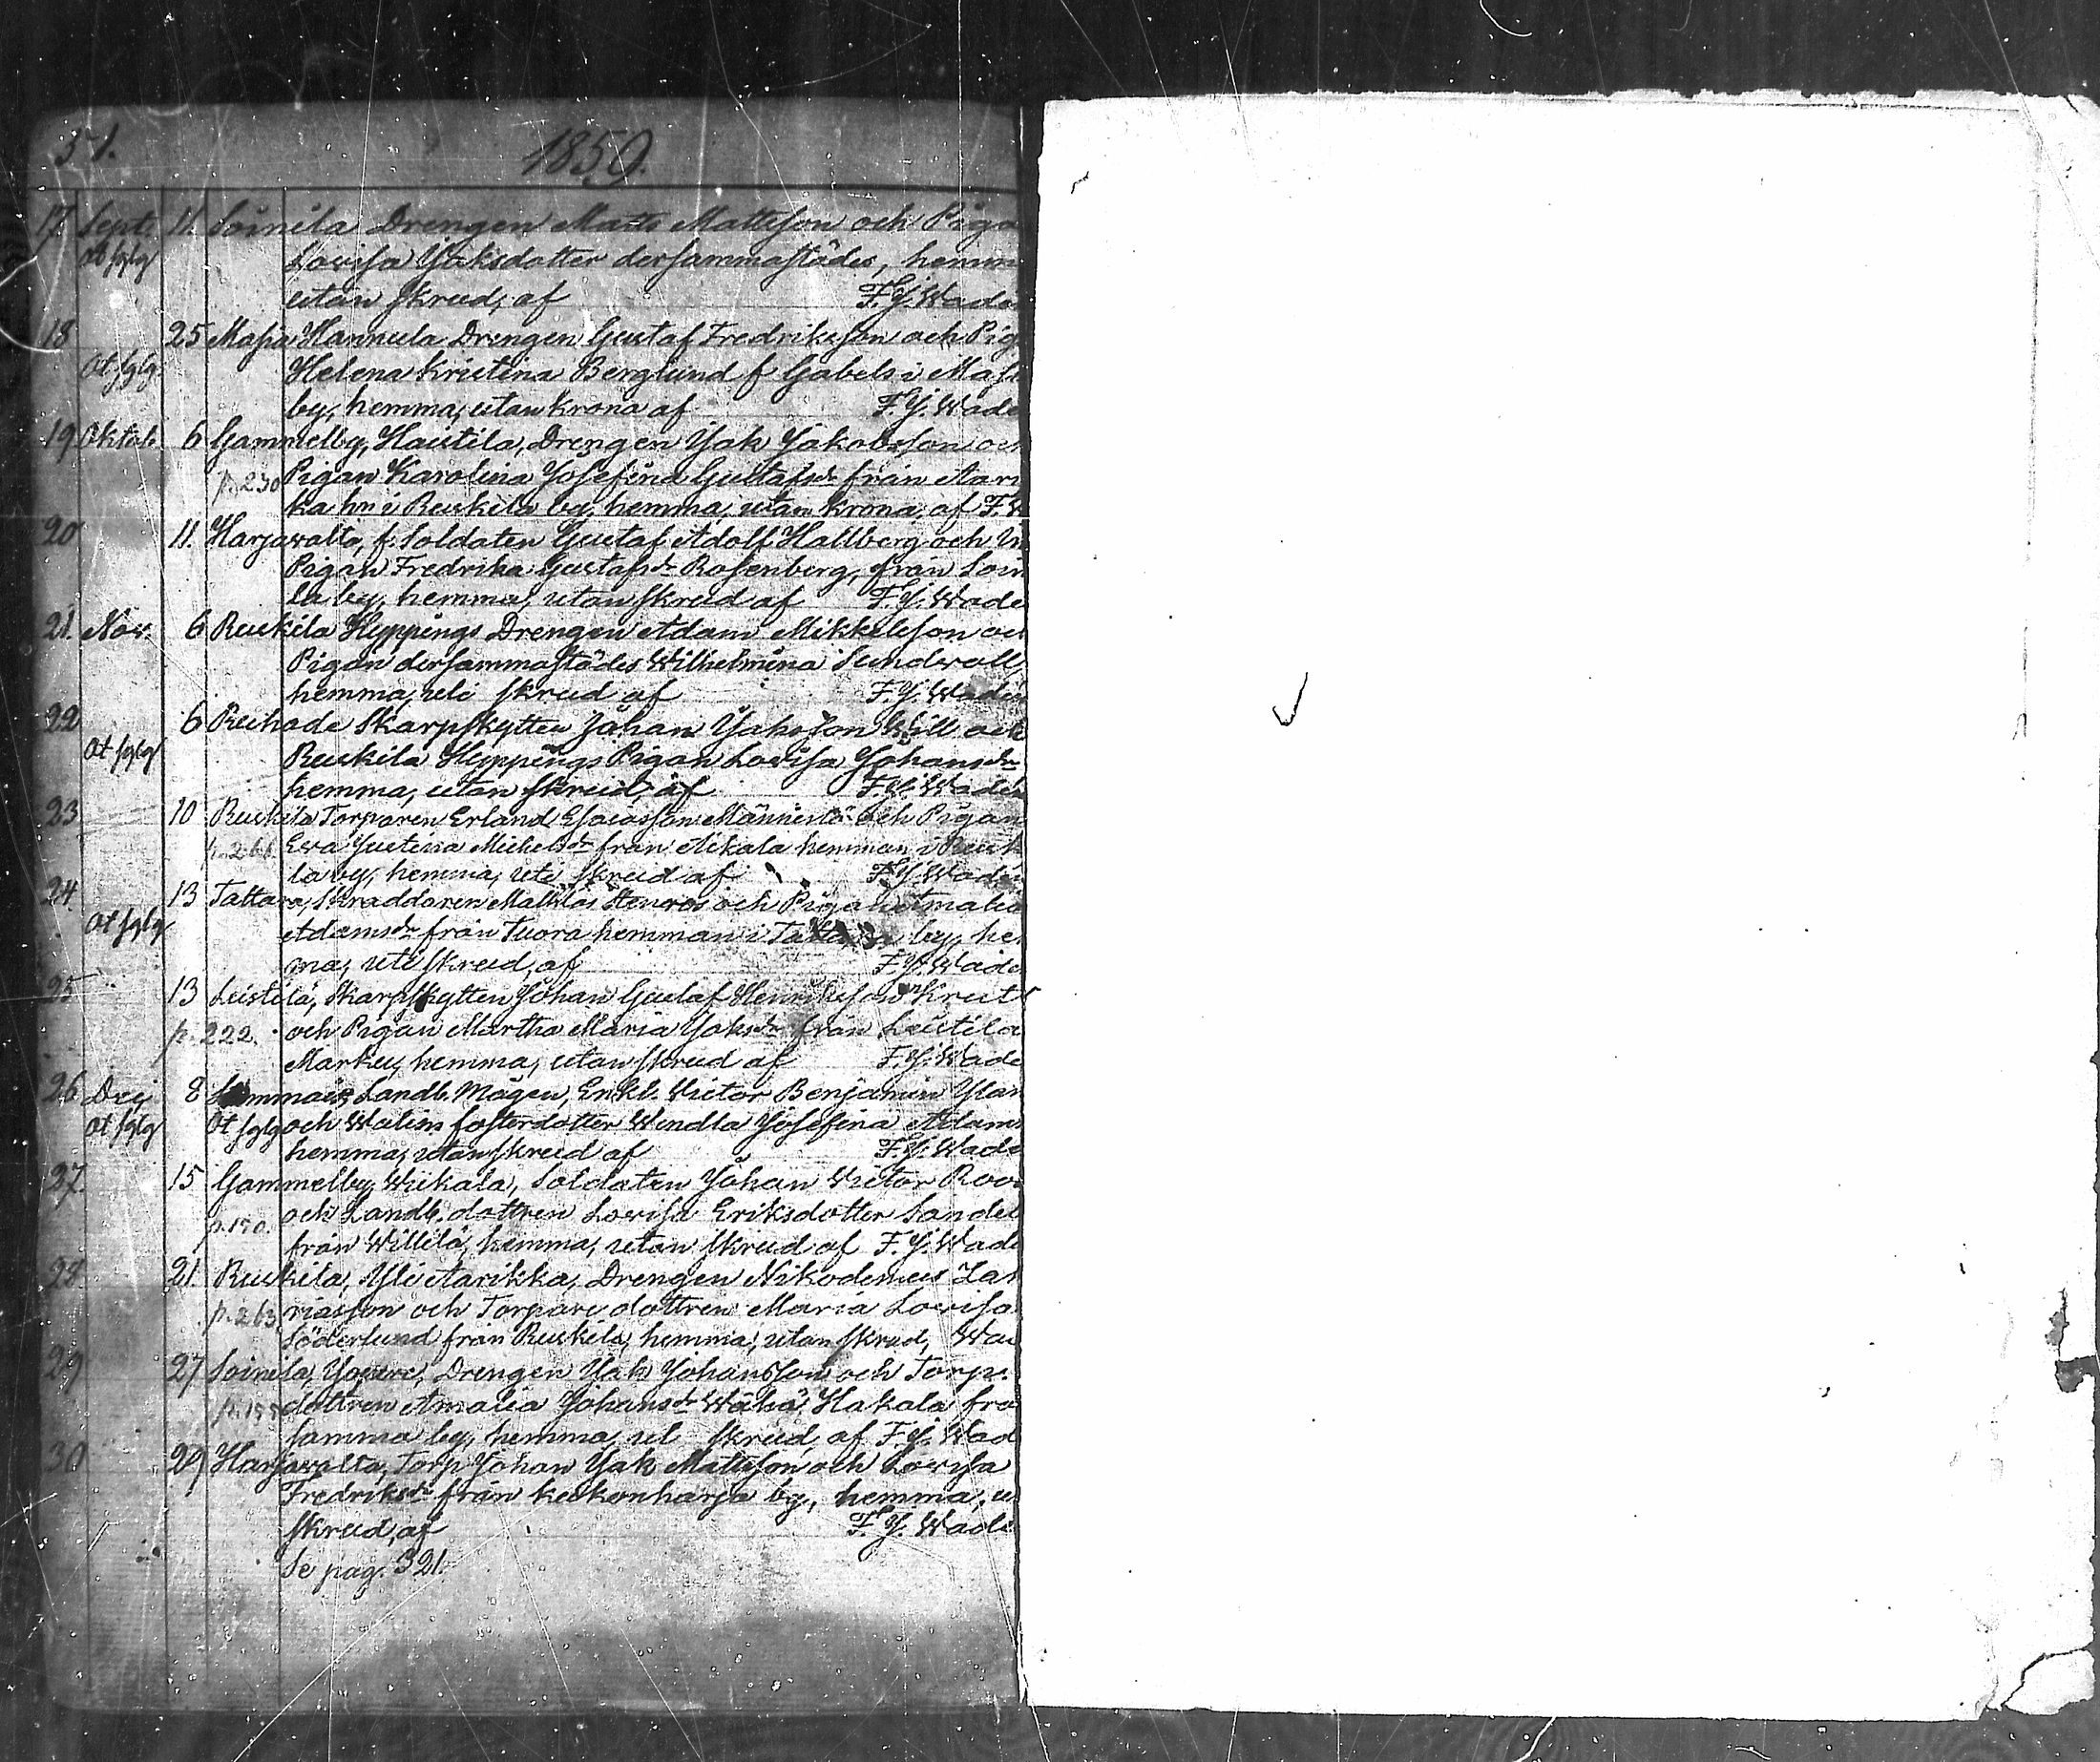 51.
1859.
17. Sept. 11. Soinila Drengen Matts Mattsson och Piga
Ot fglg Lovisa Jaksdotter dersammastädes, hemm
utan skrud, af F. J. Wade
18 25 Masia Hannula Drengen Gustaf Fredriksson och Pig
Ot fglg Helena Kristina Berglund f Gabels i Mas
by, hemma, utan krona af F. J. Wade
19 Oktob. 6 Gammelby, Hautila, Drengen Jak Jakobsson och
p. 230 Pigan Karolina Josefina Gustafsdr från Aari
ka hn i Ruskila by, hemma, utan krona, af F. W
20 11. Harjavalta, f. Soldaten Gustaf Adolf Hallberg och
Pigan Fredrika Gustafsdr Rosenberg, från Soin
la by, hemma, utan skrud af F. J. Wade
21. Nov. 6 Ruskila Hyppings Drengen Adam Mikkelsson och
Pigan dersammastädes Wilhelmina Sundvall,
hemma, uti skrud af F. J. Wade
22 6 Ruhade Skarpskytten Johan Jaksson Will och
Ot fglg Ruskila Hyppings Pigan Lovisa Johansdr
hemma, utan skrud, af F. J. Wade
23 10 Ruskila Torparen Erland Esaiasson Männistö och Pigan
p. 266. Eva Justina Michelsdr från Aikala hemman i Rusk
la by, hemma, uti skrud af F. J. Wade
24. 13 Tattara, Skraddaren Matthias Stenros och Pigan Amalia
Ot fglg Adamsdr från Tuora hemman i Tattara by, he
ma, uti skrud, af F. J. Wade
25 13 Leistilä, Skarpskytten Johan Gustaf Henriksson Krut
p. 222. och Pigan Martha Maria Jaksdr från Leistilä
Markus, hemma, utan skrud af F. J. Wade
26 Dec. 8 Sammais, Landb. Mågen, Enkl. Victor Benjamin
Ot fglg Ot fglg och Walins fosterdotter Wendla Josefina Adams
hemma, utan skrud af F. J. Wade
27. 15 Gammelby, Wiikala, Soldaten Johan Victor Roo
p. 150. och Landb. dottren Lovisa Eriksdotter Sandel
från Willilä, hemma, utan skrud af F. J. Wade
28. 21. Ruskila, Yli Aarikka, Drengen Nikodemus Zak
p. 263 riasson och Torpare dottren Maria Lovisa
Söderlund från Ruskila, hemma, utan skrud, Wa
29 27 Soinila, Drengen Jak Johansson och Torp.
dottren Amalia Johansdr Wähä Hakala frå
samma by, hemma, skrud af F. J. Wad
30 29 Harjavalta, Torp Johan Jak Mattsson och Lovisa
Fredriksdr från Keskonharja by, hemma, u
skrud, af F. J. Wade
Se pag. 321.